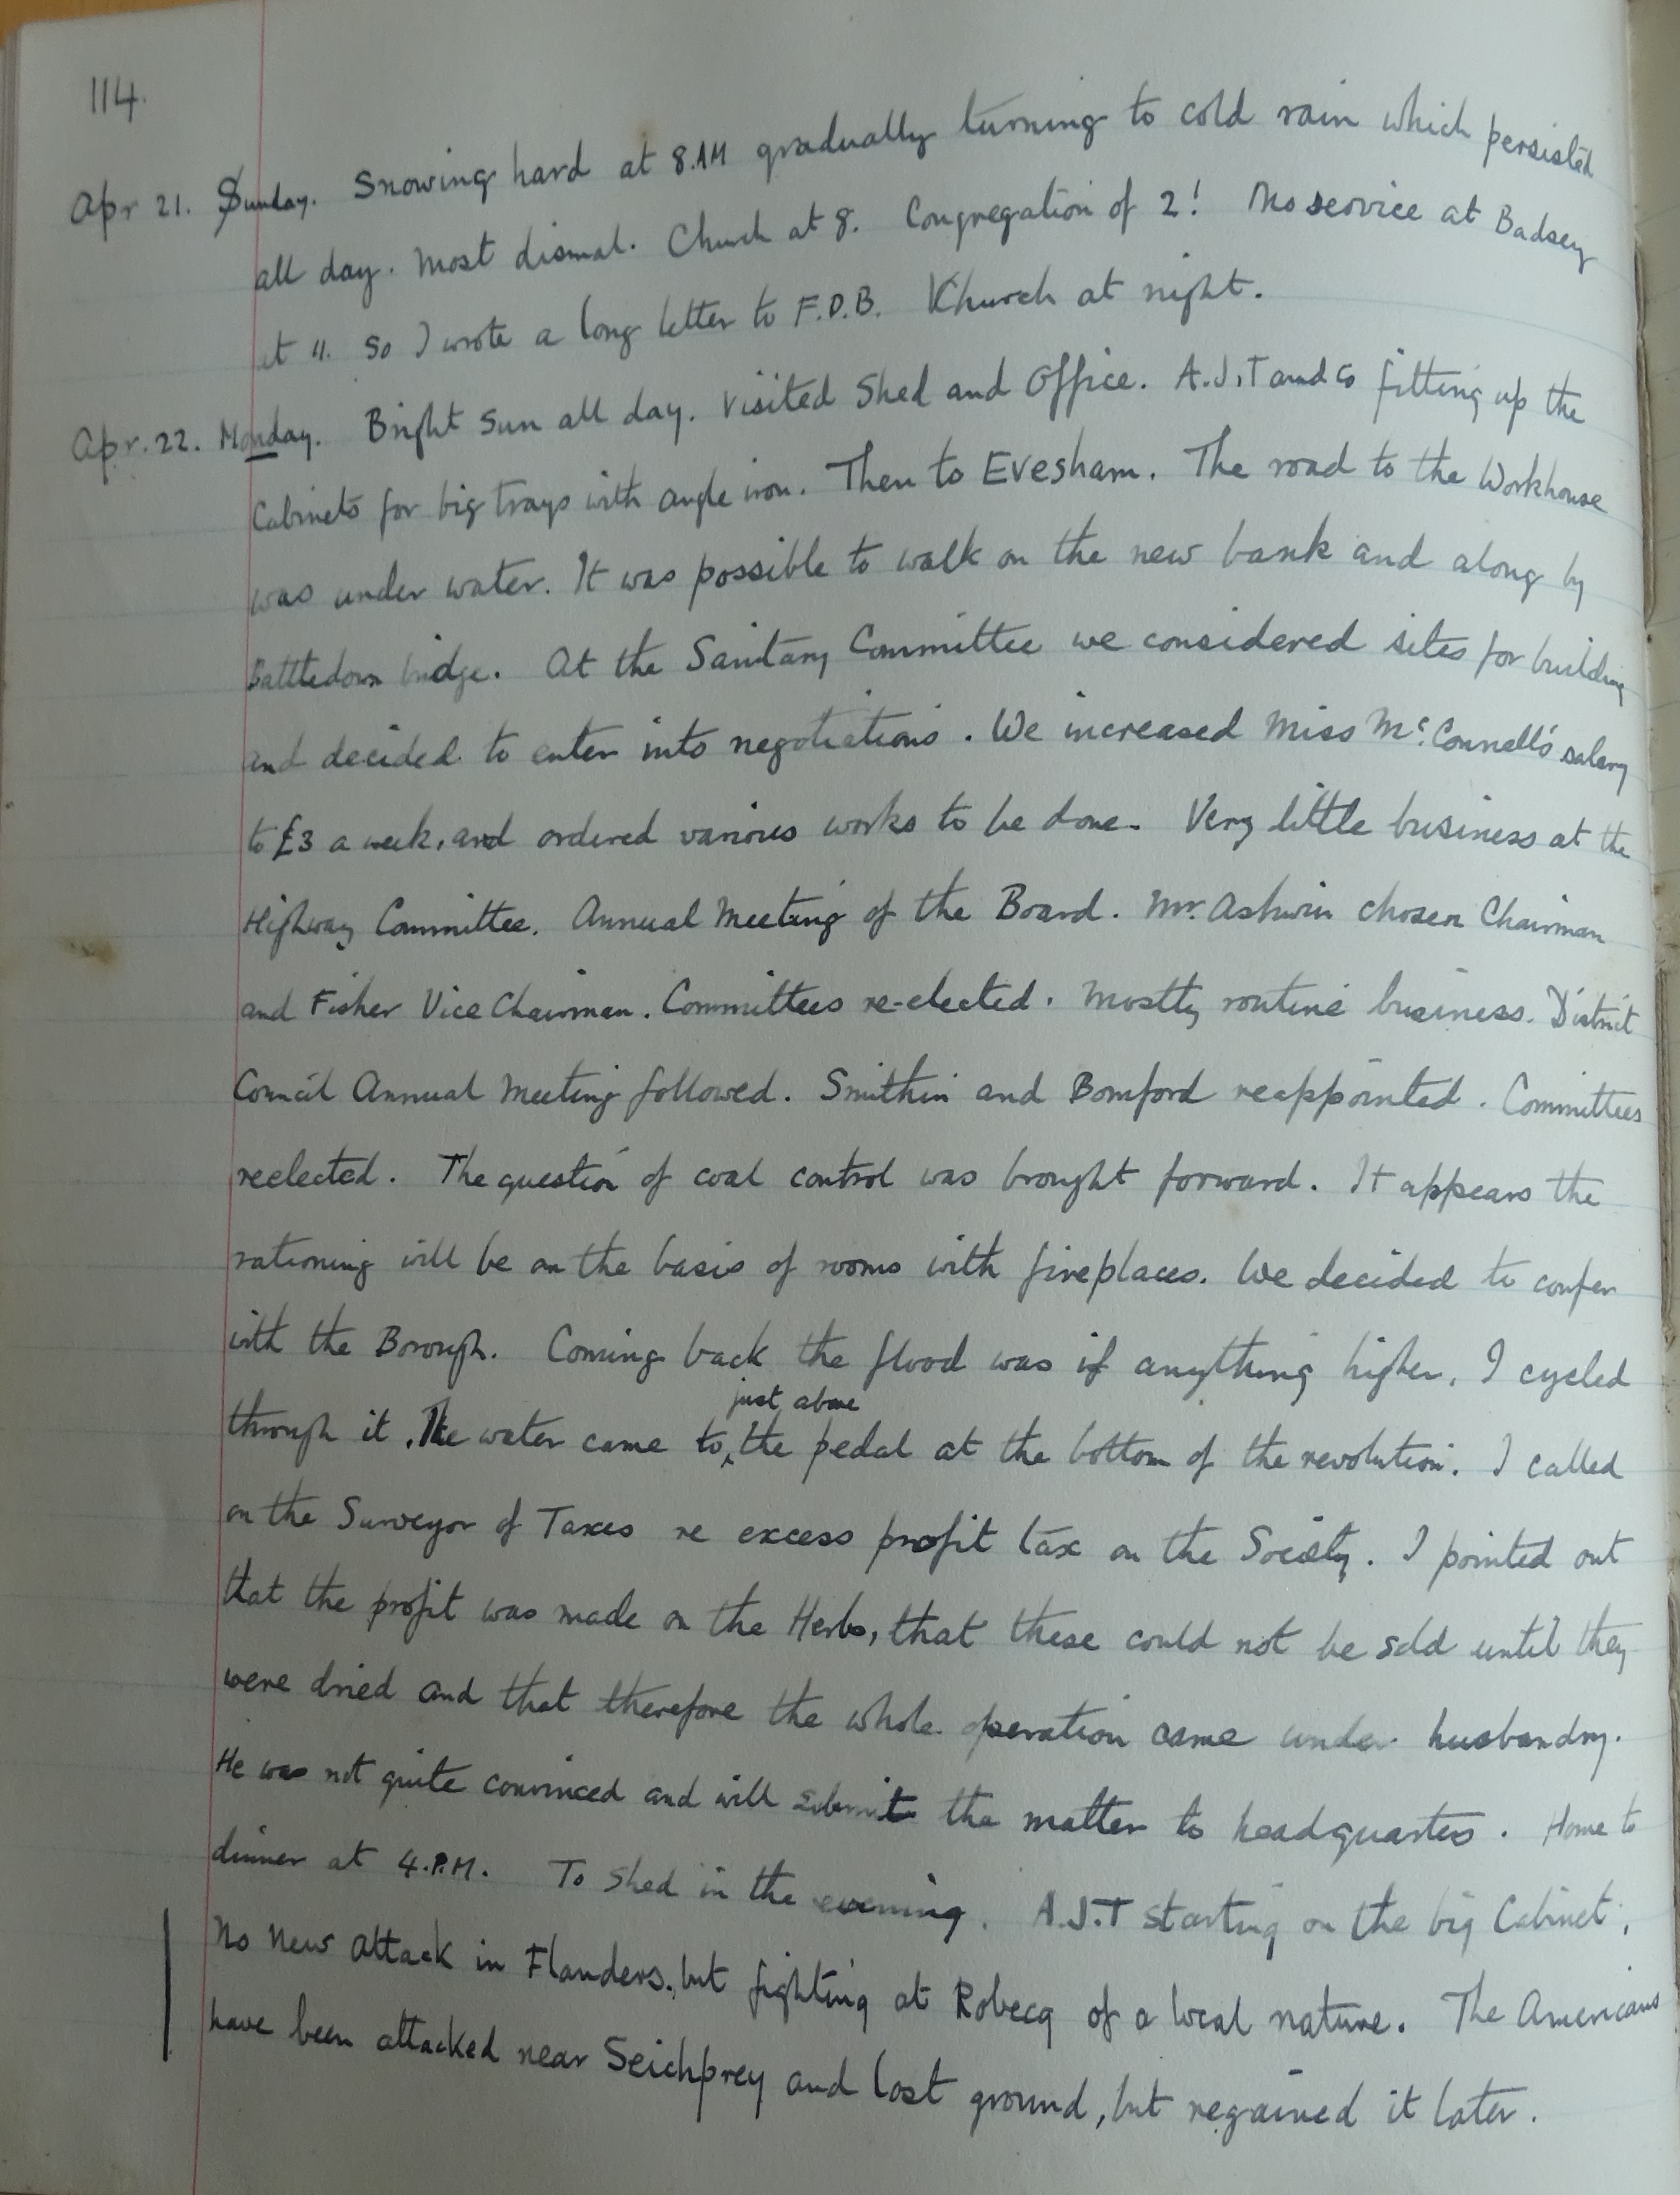 114.
Apr 21. Sunday. Snowing hard at 8.AM gradually turning to cold rain which persisted
all day. Most dismal. Church at 8. Congregation of 2! No service at Badsey
at 11. So I wrote a long letter to F.D.B. Church at night.
Apr. 22. Monday. Bright sun all day. Visited Shed and Office. A.J.T and Co fitting up the
Cabinets for big trays with angle iron. Then to Evesham. The road to the Workhouse
was under water. It was possible to walk on the new bank and along by
Battledown bridge. At the Sanitary Committee we considered sites for building
and decided to enter into negotiations. We increased Miss Mc. Connell's salary
to £3 a week, and ordered various works to be done. Very little business at the
Highway Committee. Annual Meeting of the Board. Mr. Ashwin chosen Chairman
and Fisher Vice Chairman. Committees re-elected. Mostly routine business. District
Council Annual Meeting followed. Smithin and Bomford reappointed. Committees
reelected. The question of coal control was brought forward. It appears the
rationing will be on the basis of rooms with fireplaces. We decided to confer
with the Borough. Coming back the flood was if anything higher, I cycled
through it. The water came to just above the pedal at the bottom of the revolution. I called
on the Surveyor of Taxes re excess profit tax on the Society. I pointed out
that the profit was made on the Herbs, that these could not be sold until they
were dried and that therefore the whole operation came under husbandry.
He was not quite convinced and will submit the matter to headquarters. Home to
dinner at 4.P.M. To Shed in the evening. A.J.T starting on the big Cabinet.
No new attack in Flanders, but fighting at Robecq of a local nature. The Americans
have been attacked near Seichprey and lost ground, but regained it later.